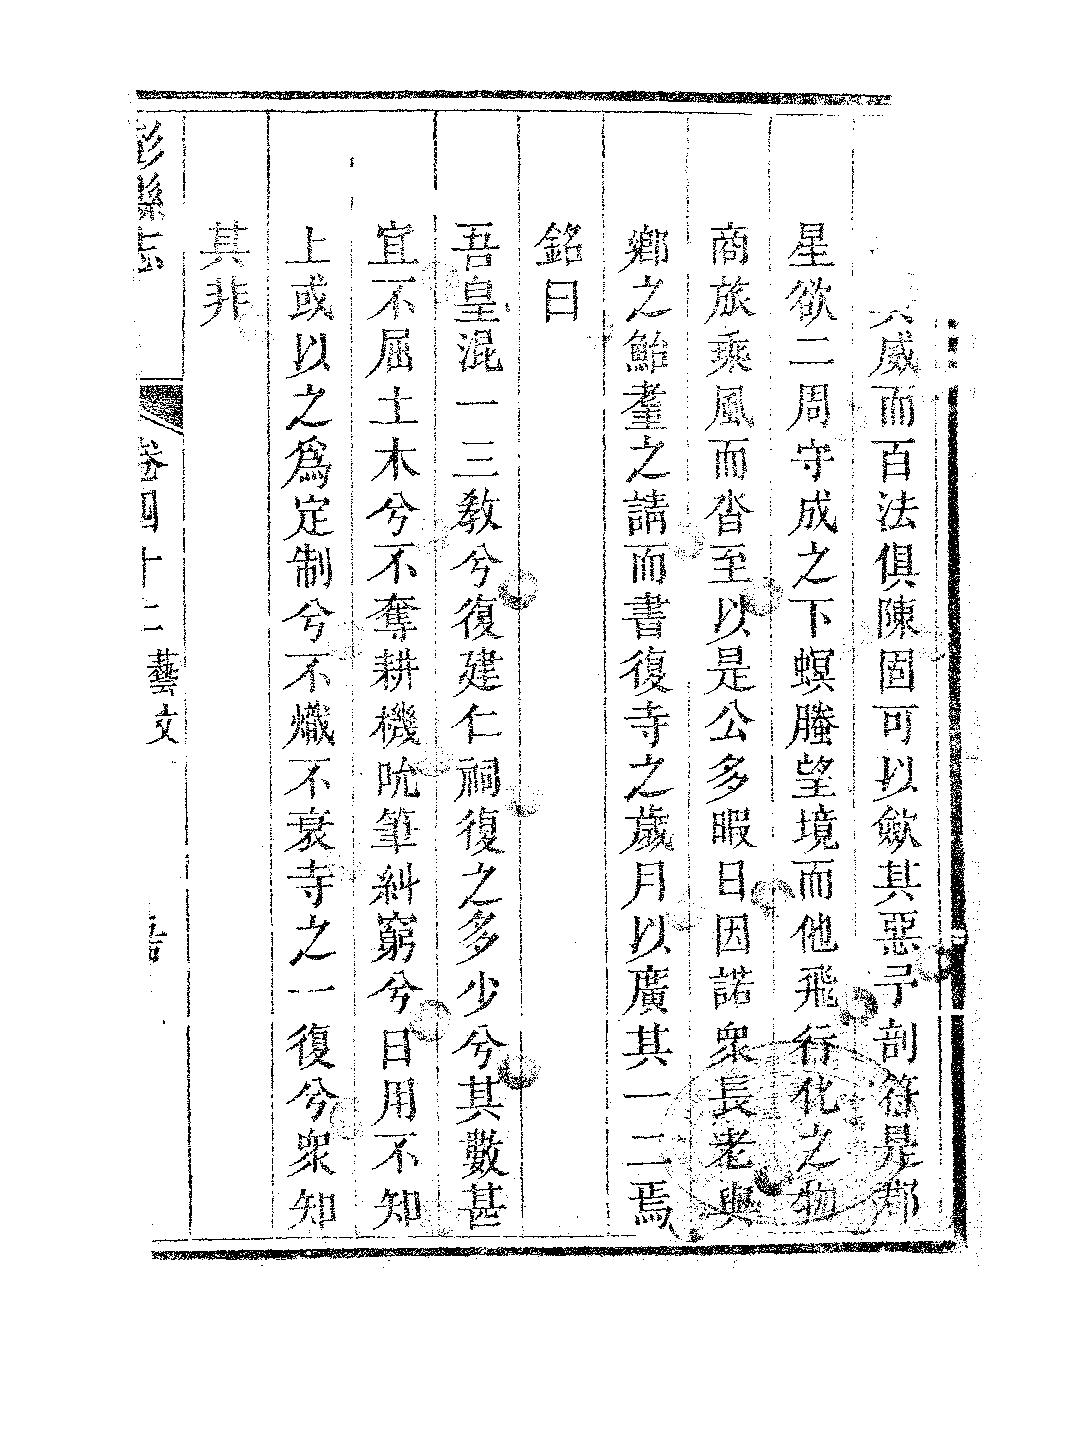 威而百法俱陳固可以斂其惡予剖符是郡
星欲二周守成之下螟螣望境而他飛行化之物
商旅乘風而沓至以是公多暇日因諾衆長老與
鄉之鮐耋之請而書復寺之歲月以廣其一二焉
銘曰
吾皇混一三教兮復建仁祠復之多少兮其數甚
宜不屈土木兮不奪耕機吮筆糾窮兮日用不知
上或以之爲定制兮不熾不衰寺之一復兮衆知
其非
彭縣志 卷四十二 藝文